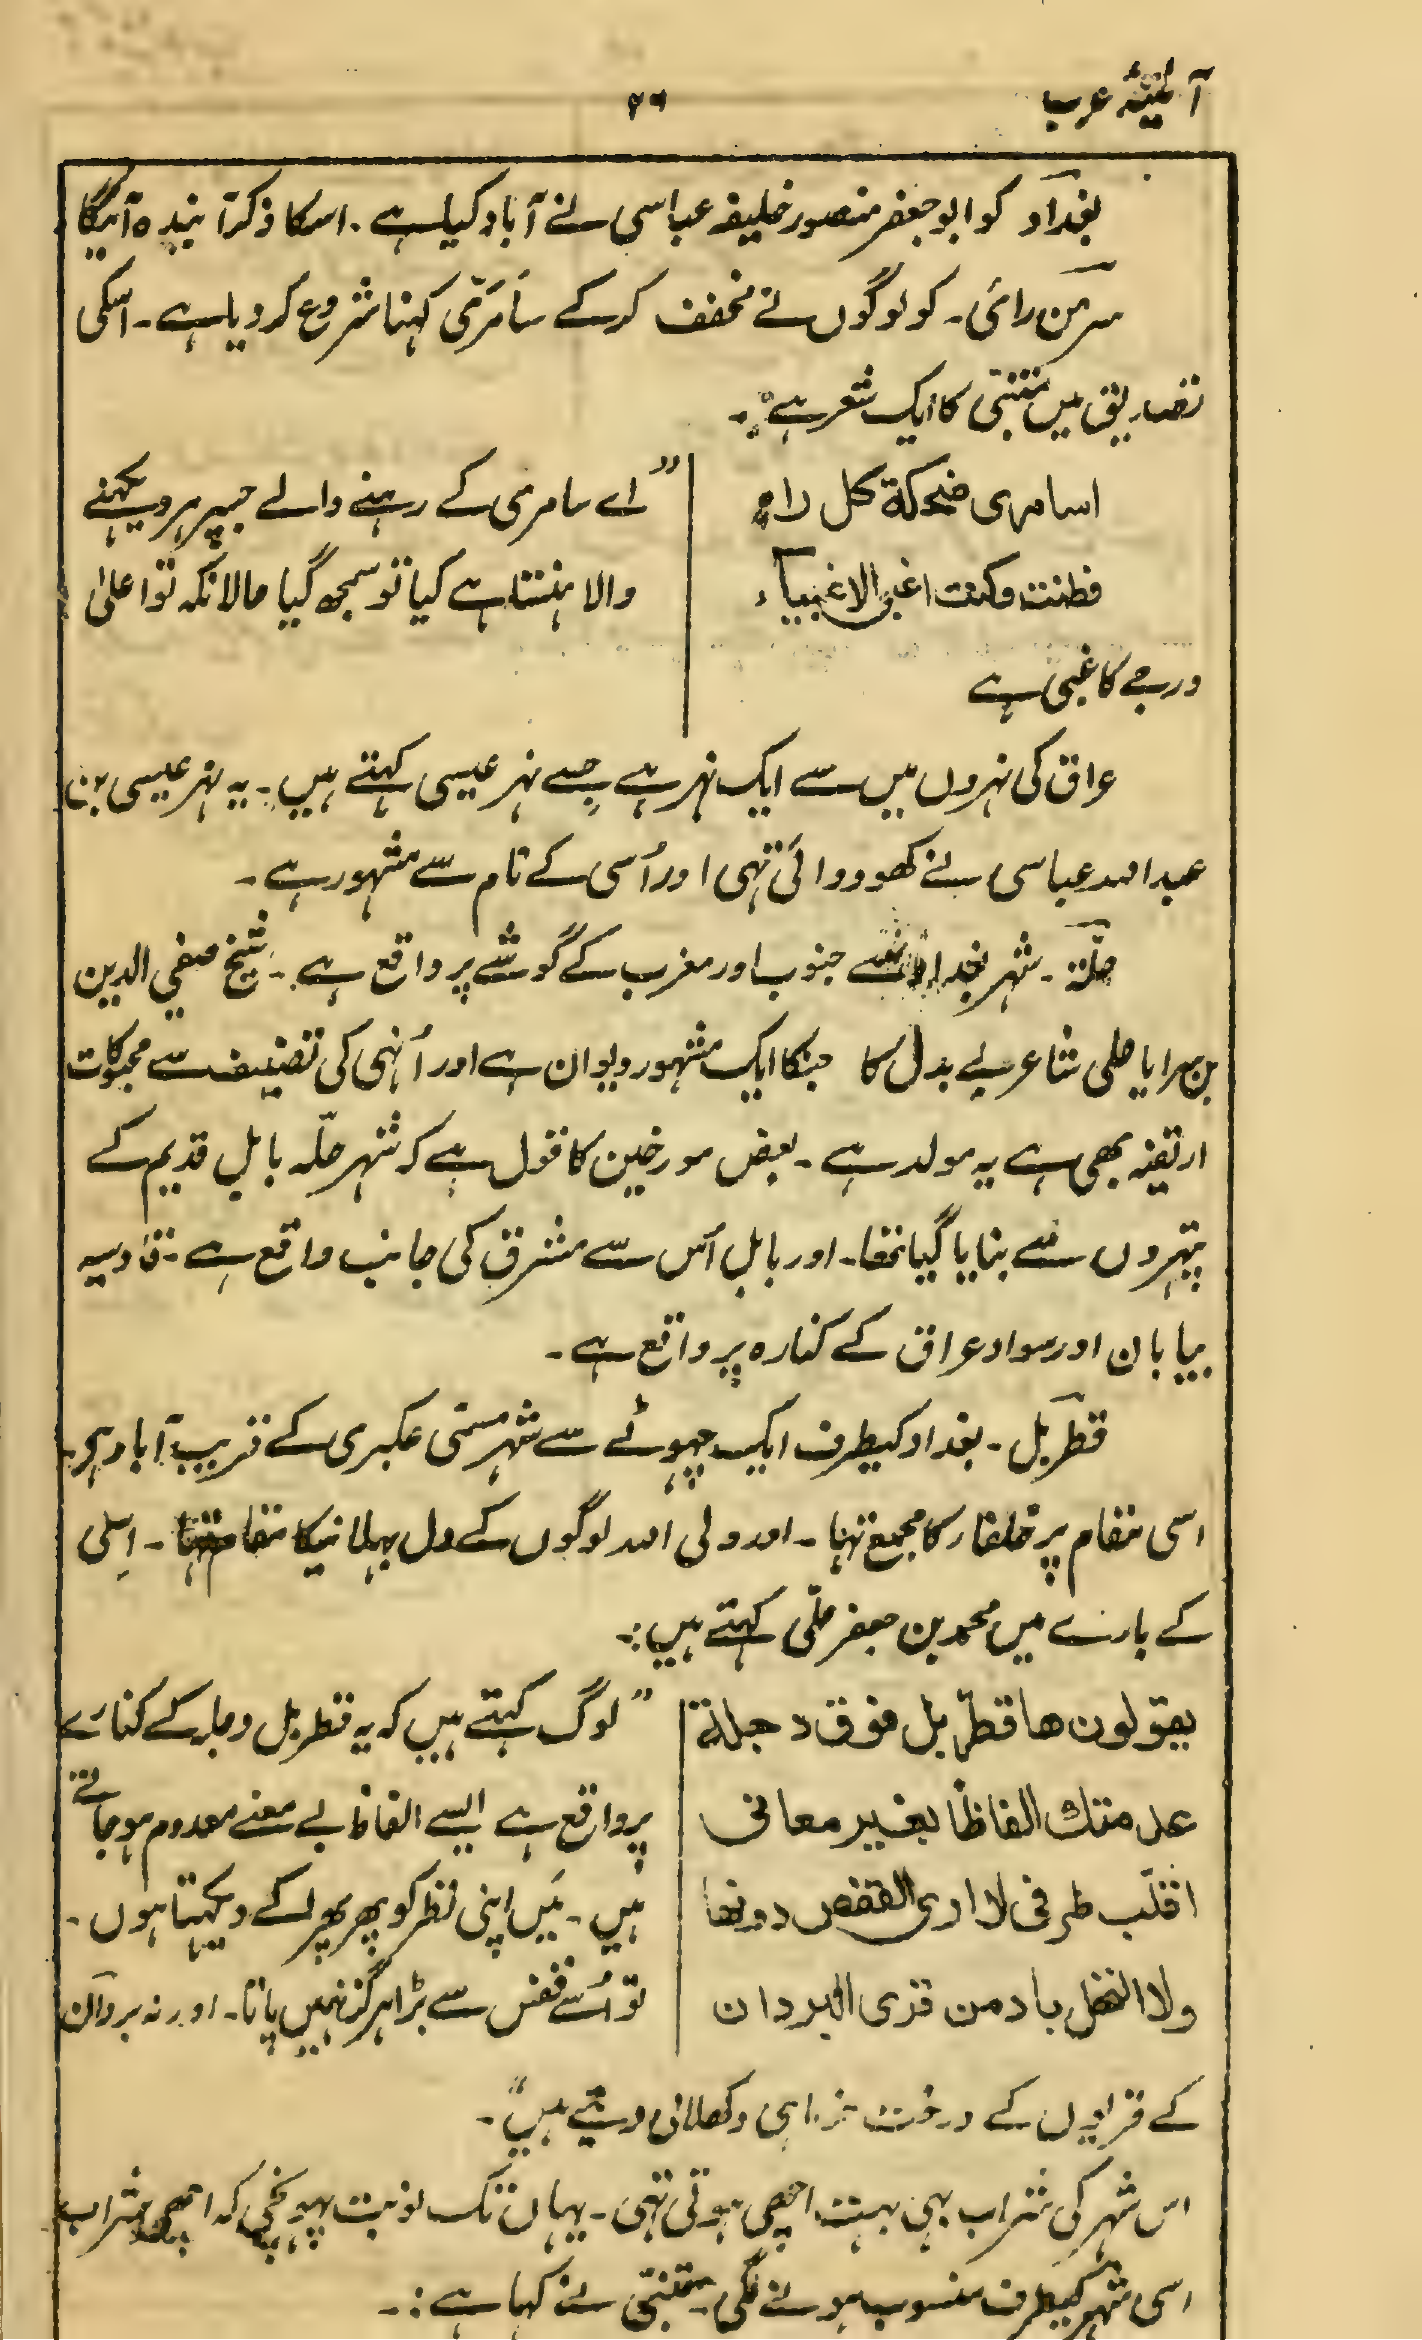 آئینۂ عرب
۲۶
بغداد کو ابو جعفر منصور خلیفہ عباسی نے آباد کیا ہے۔ اسکا ذکر آیندہ آئیگا
سر من رائی۔ کو لوگوں نے مخفف کرکے سامَرّی کہنا شروع کردیا ہے۔ اسکی
تصدیق میں متنبی کا ایک شعر ہے:۔
اسامری ضحکة کل راءٍ
فطنت وکنت اغبی الاغبیآء
"اے سامری کے رہنے والے جسپر ہر دیکھنے
والا ہنستا ہے کیا تو سمجھ گیا حالانکہ تو اعلیٰ
درجے کا غبی ہے
عراق کی نہروں میں سے ایک نہر ہے جسے نہر عیسی کہتے ہیں۔ یہ نہر عیسی بن
عبد اللہ عباسی نے کھودوائی تہی اور اُسی کے نام سے مشہور ہے۔
حلّہ۔ شہر بغداد سے جنوب اور مغرب کے گوشے پر واقع ہے۔ شیخ صفی الدین
بن سرایا حلی شاعر بے بدل کا جنکا ایک مشہور دیوان ہے اور اُنہی کی تصنیف سے محبوکات
ارتقیہ بھی ہے یہ مولد ہے۔ بعض مورخین کا قول ہے کہ شہر حلّہ بابل قدیم کے
پتہروں سے بنایا گیا تھا۔ اور بابل اُس سے مشرق کی جانب واقع ہے۔ قادسیہ
بیابان اور سواد عراق کے کنارہ پر واقع ہے۔
قطربُل۔ بغداد کیطرف ایک چہوٹے سے شہر مسمّی عکبری کے قریب آباد ہے۔
اسی مقام پر خلفار کا مجمع تہا۔ اور ولی اللہ لوگوں کے دل بہلانیکا مقام تہا۔ اِسی
کے بارے میں محمد بن جعفر حلّی کہتے ہیں:۔
یقولون ها قطربل فوق دجلة
عدمتك الفاظًا بغیر معانی
اقلّب طرفی لا اری القفص دونها
ولا النخل باد من قری البردان
"لوگ کہتے ہیں کہ یہ قطربل دجلہ کے کنارے
پر واقع ہے ایسے الفاظ بے معنے معدوم ہوجاتے
ہیں۔ مَیں اپنی نظر کو پھر پھر کے دیکہتا ہوں۔
تو اُسے قفس سے بڑا ہرگز نہیں پاتا۔ اور نہ بردان
کے قریوں کے درخت خرما ہی دکھلائی دیتے ہیں"۔
اس شہر کی شراب بہی بہت اچھی ہوتی تہی۔ یہاں تک نوبت پہونچی کہ اچھی شراب
اسی شہر کیطرف منسوب ہونے لگی۔ متنبی نے کہا ہے:۔